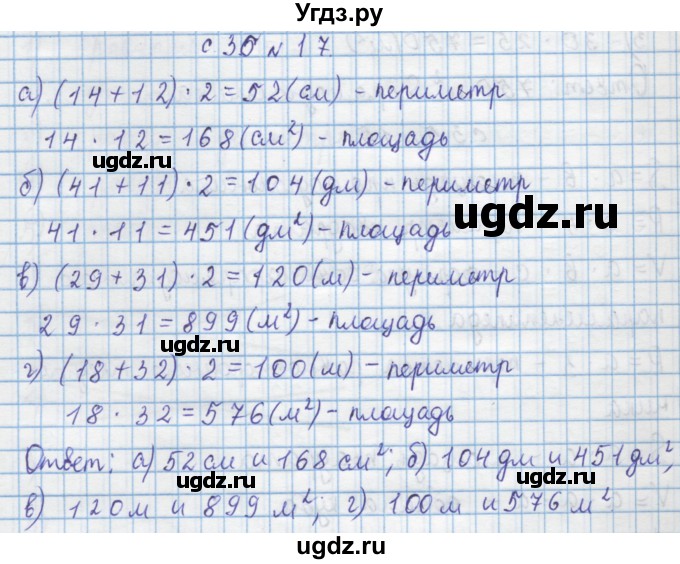 Угдз.ру
с 35 № 17
а) (14+12)·2=52(см) - периметр
14·12=168(см²) - площадь
ugdz.ru
ugdz.ru
б) (41+11)·2=104(дм) - периметр
ugdz.ru
41·11=451(дм²) - площадь
ugdz.ru
в) (29+31)·2=120(м) - периметр
29·31=899(м²) - площадь
ugdz.ru
г) (18+32)·2=100(м) - периметр
18·32=576(м²) - площадь
ugdz.ru
Ответ: а) 52 см и 168 см²; б) 104 дм и 451 дм²,
ugdz.ru
в) 120 м и 899 м²; г) 100 м и 576 м²
ugdz.ru